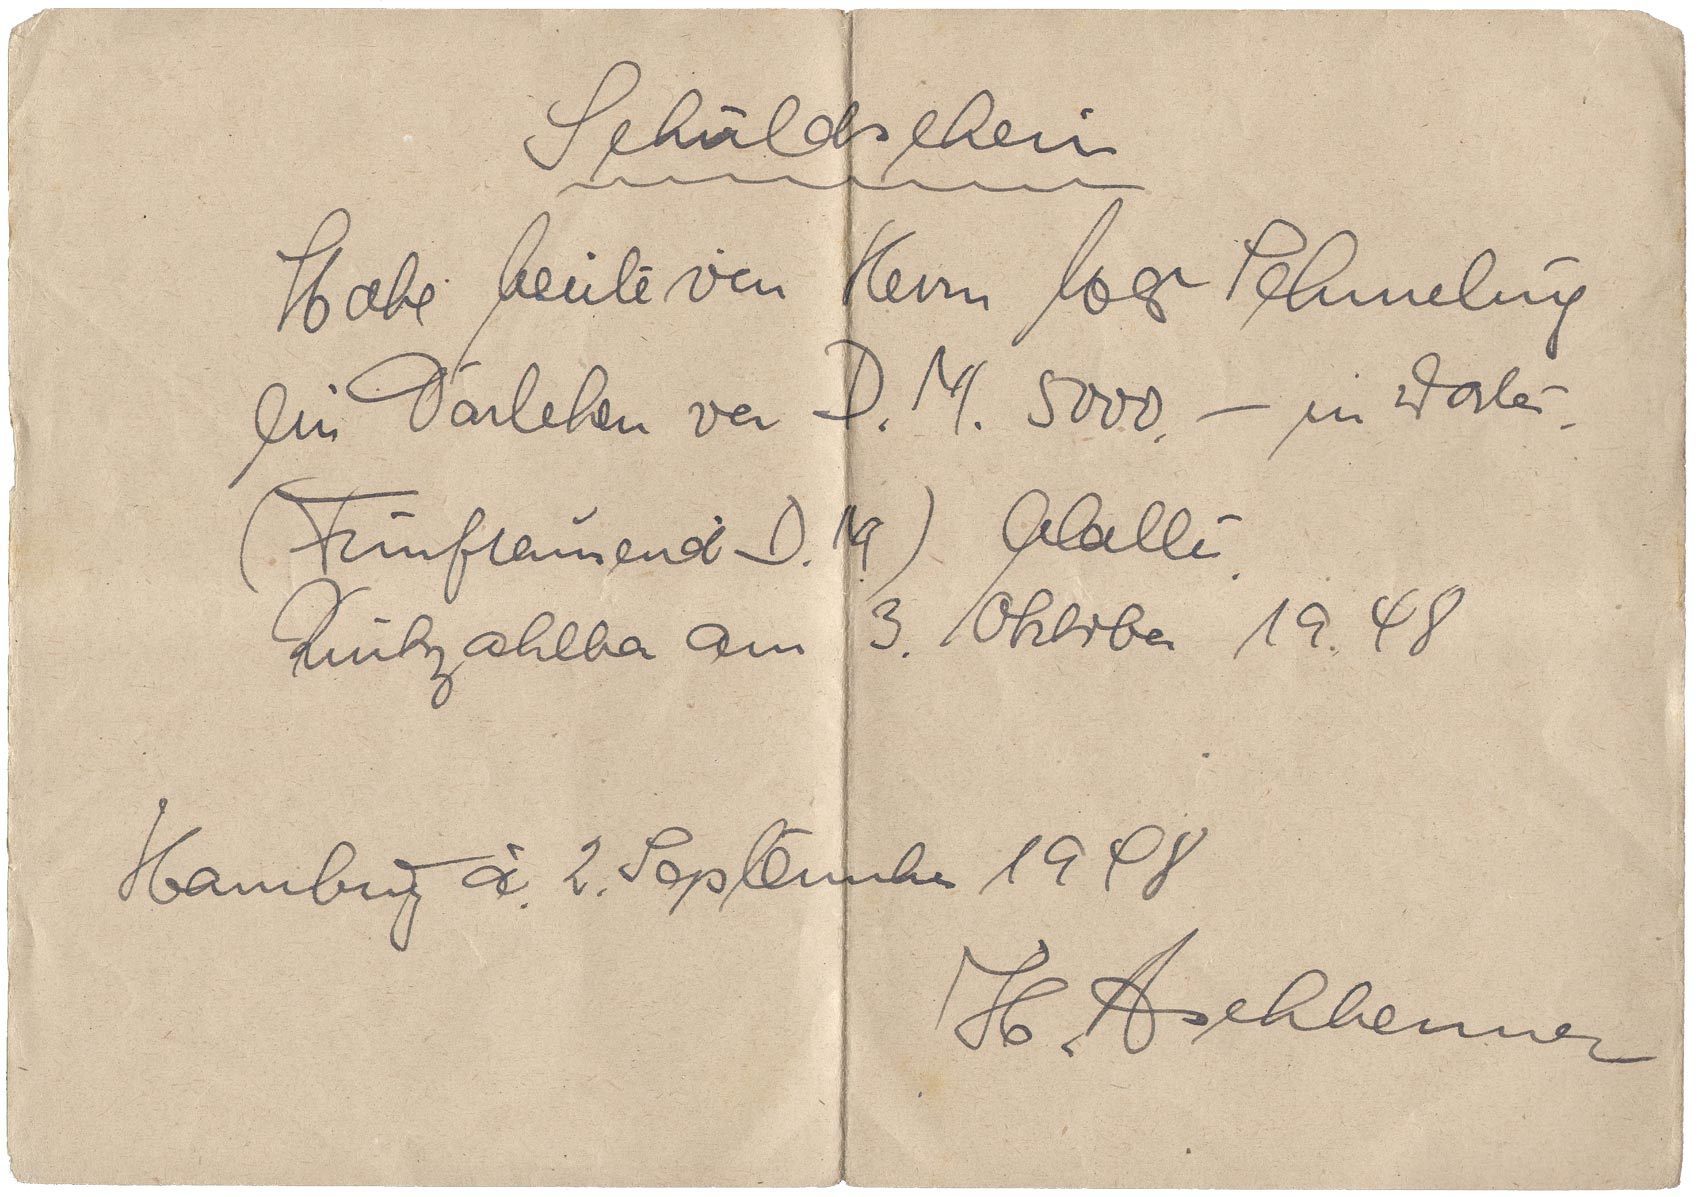 Schuldschein
Habe heute von Herrn Schmeling
ein Darlehen von D.M. 5000.– in Worten.
(Fünftausend D.M) erhalten.
Rückzahlbar am 3. Oktober 19.48
Hamburg d. 2. September 1948
H. Aschbenner